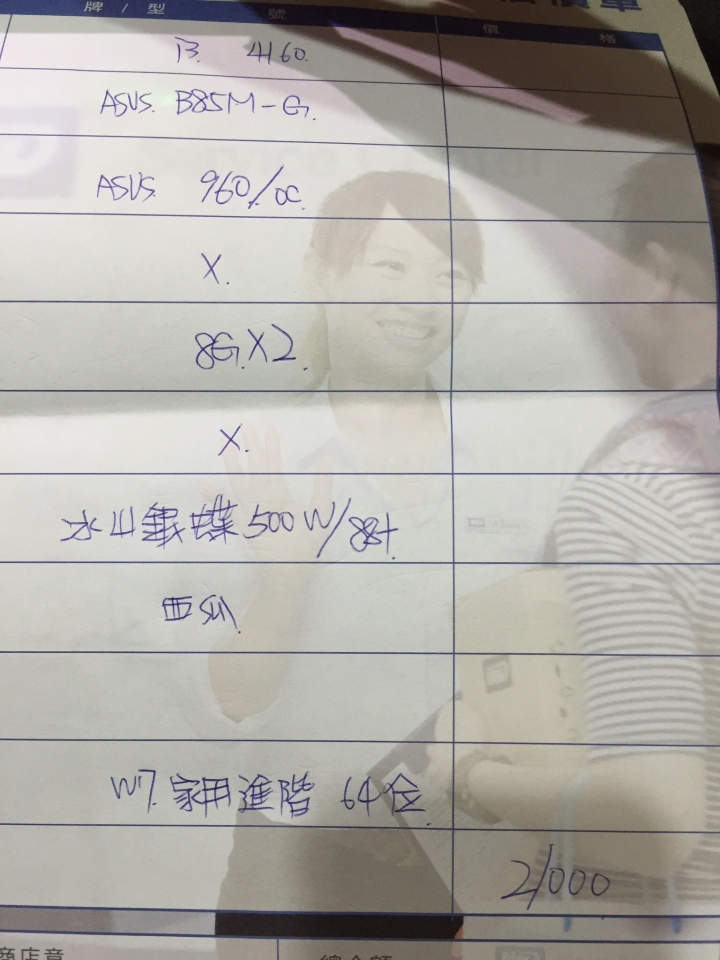 牌 / 型 號 價 格
i3. 4160.
ASUS. B85M-G.
ASUS. 960/OC.
X.
8G.X2.
X.
冰山銀蝶500W/88+.
W7.家用進階 64位.
21000
商店章 總金額